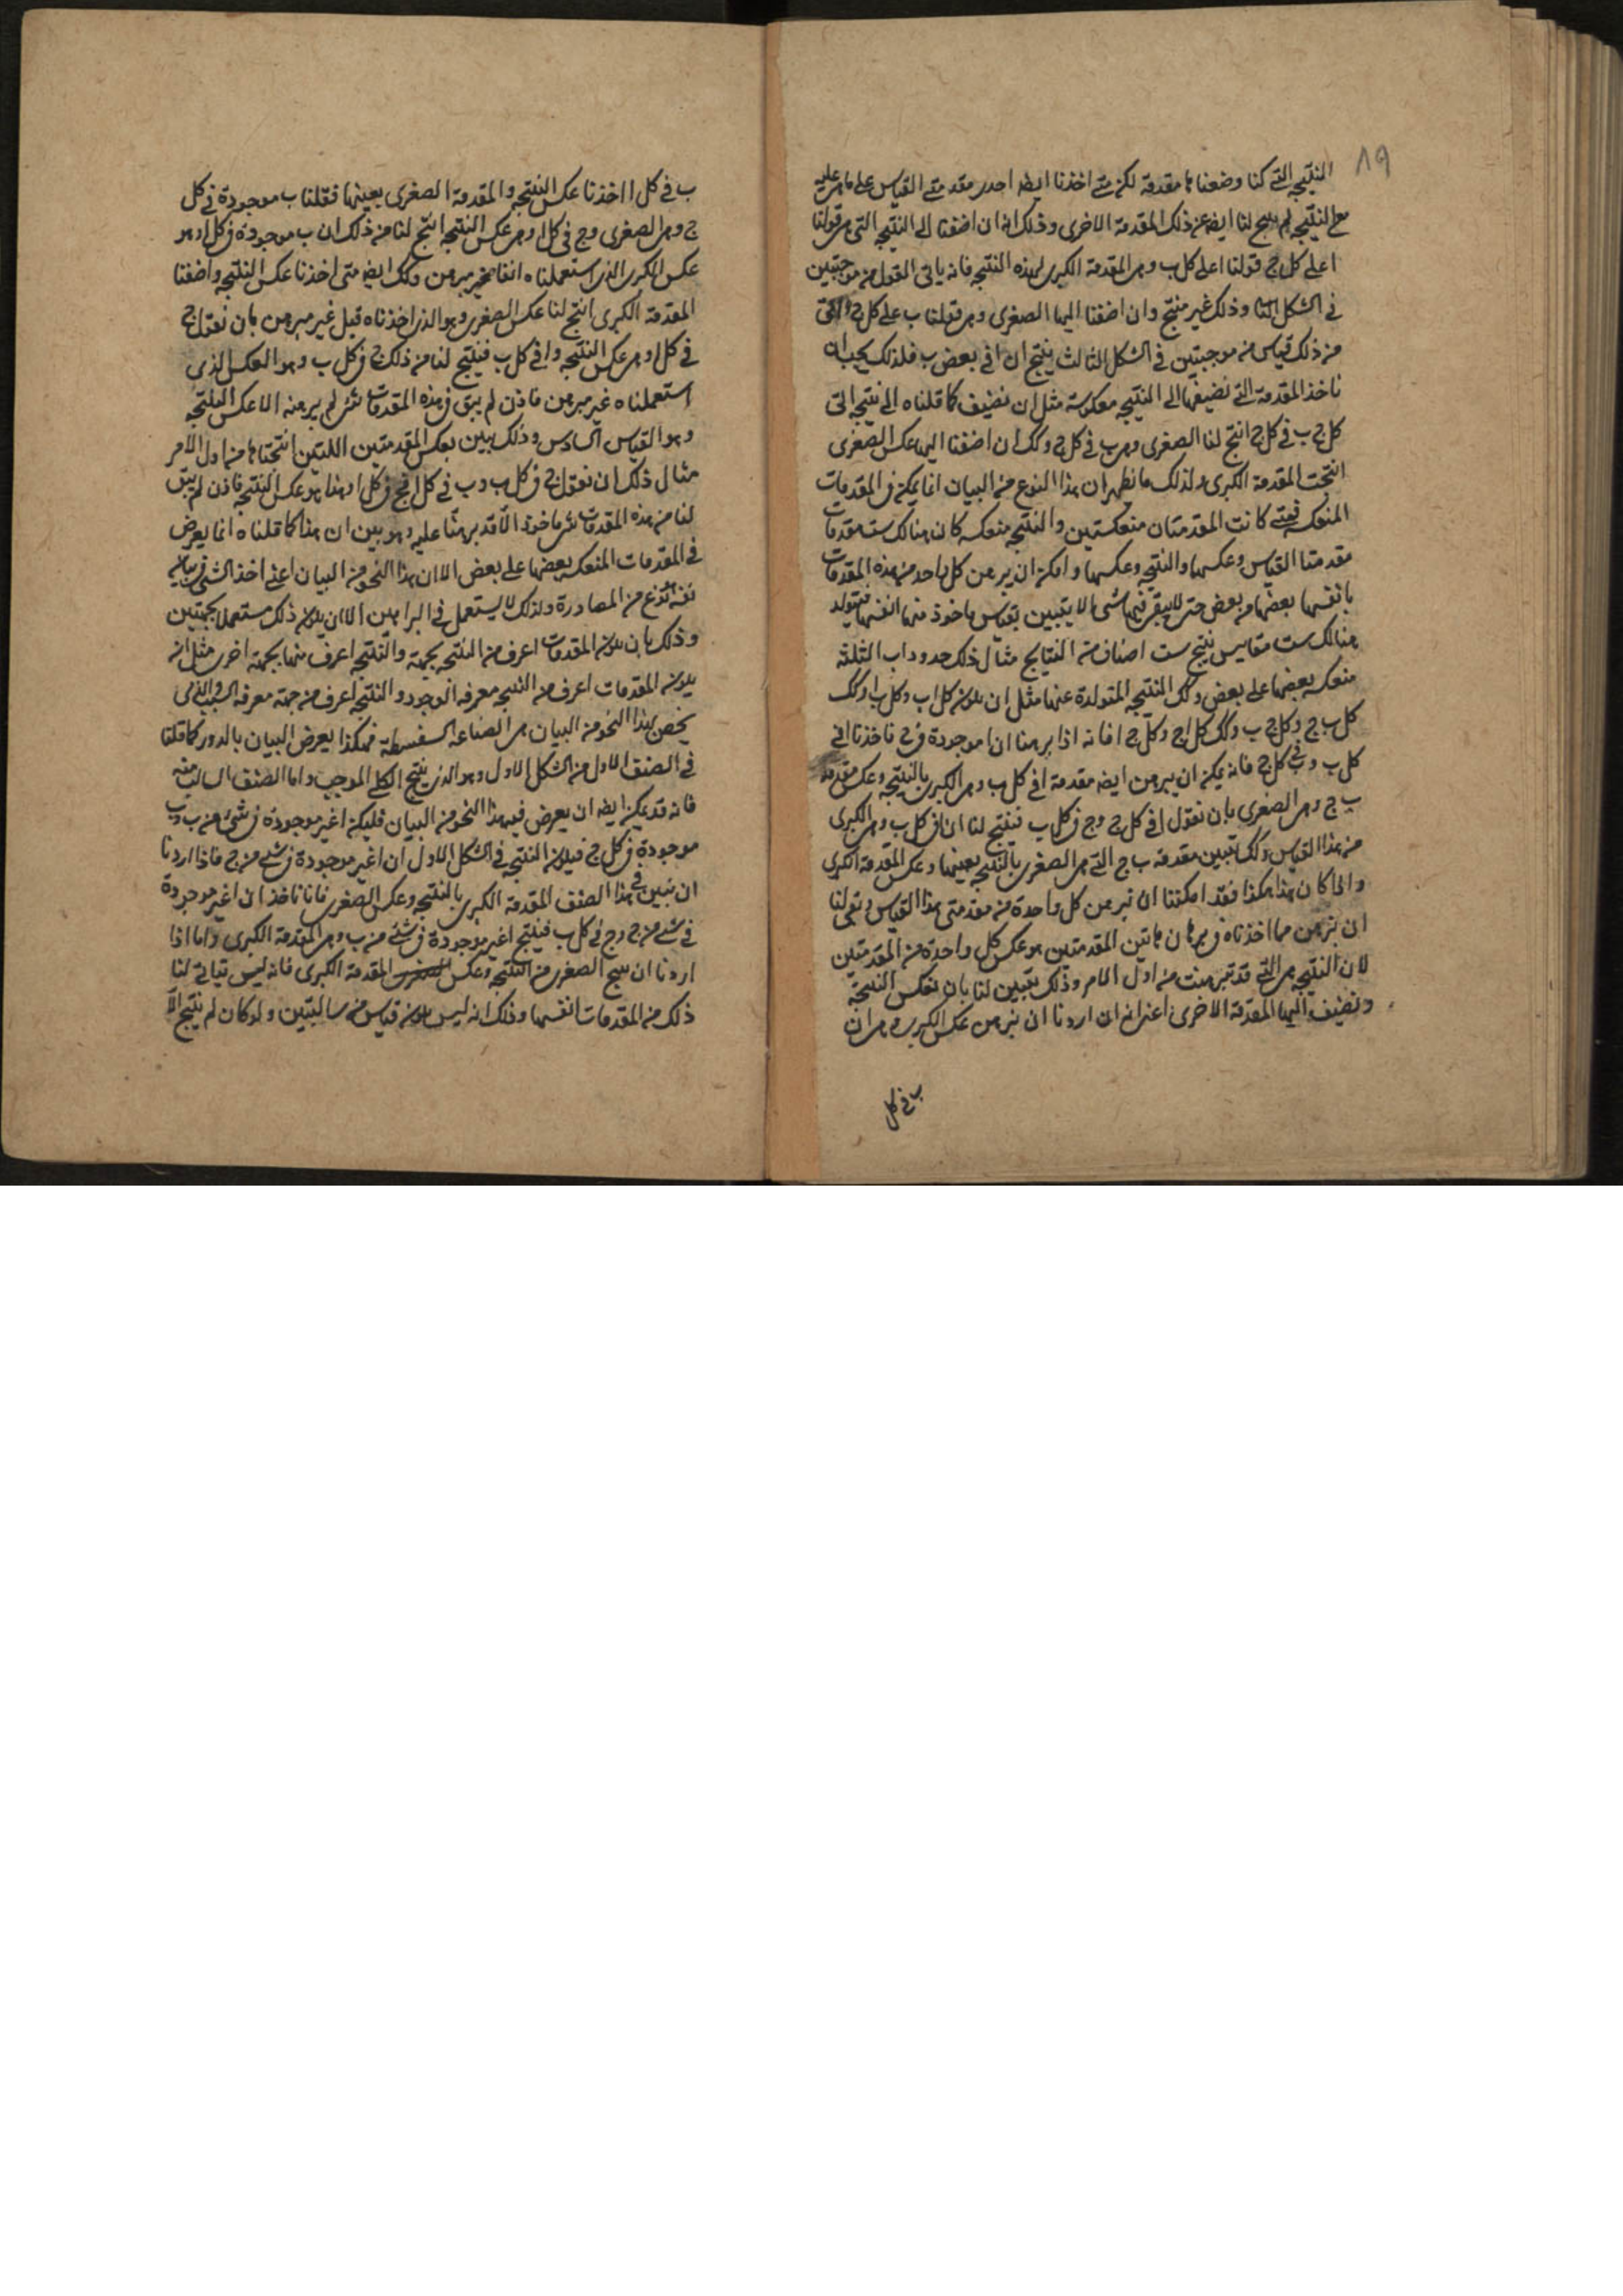 ٨٩
النتيجة التي كنا وضعناها مقدمة لكن متى اخذنا ايضا احدى مقدمتي القياس على ما هى عليه
مع النتيجة لم ينتج لنا ايضا عن ذلك المقدمة الاخرى وذلك انه ان اضفنا الى النتيجة التى هى قولنا
ا على كل ج قولنا ا على كل ب وهى المقدمة الكبرى لهذه النتيجة فانه ياتى القول من موجبتين
فى الشكل الثانى وذلك غير منتج وان اضفنا اليها الصغرى وهى قولنا ب على كل ج
من ذلك قياس من موجبتين فى الشكل الثالث ينتج ان ا فى بعض ب فلذلك يجب ان
ناخذ المقدمة التى نضيفها الى النتيجة معكوسة مثل ان نضيف كما قلناه الى نتيجة التى
كل ج ب فى كل ج انتج لنا الصغرى وهى ب فى كل ج وكك ان اضفنا اليها عكس الصغرى
انتجت المقدمة الكبرى ولذلك ما نظهر ان هذا النوع من البيان انما يمكن فى المقدمات
المنعكسة فمتى كانت المقدمتان منعكستين والنتيجة منعكسة كان هنالك ست مقدمات
مقدمتا القياس وعكسهما والنتيجة وعكسها وامكن ان يبرهن كل واحد من هذه المقدمات
بانفسها بعضها من بعض حتى لا يبقى فيها شى الا يتبين بقياس ماخوذ منها انفسها فيتولد
هنالك ست مقاييس ينتج ست اصناف من النتايج مثال ذلك حدود اب الثلثة
منعكسة بعضها على بعض وكك النتيجة المتولدة عنها مثل ان يكون كل اب وكل ب ا وكك
كل ب ج وكل ج ب وكك كل ا ج وكل ج ا فانه اذا برهنا ان ا موجودة فى ج ناخذنا ا فى
كل ب و ب فى كل ج فانه يمكن ان يبرهن ايضا مقدمة ا فى كل ب وهى الكبرى بالنتيجة وعكس مقدمة
ب ج وهى الصغرى بان نقول ا فى كل ج و ج فى كل ب فينتج لنا ان ا فى كل ب وهى الكبرى
من هذا القياس وكك تبين مقدمة ب ج التى هى الصغرى بالنتيجة بعينها وعكس المقدمة الكبرى
واذا كان هذا هكذا فقد امكننا ان نبرهن كل واحدة من مقدمتى هذا القياس وبقى لنا
ان نبرهن مما اخذناه فى برهان هاتين المقدمتين هو عكس كل واحدة من المقدمتين
لان النتيجة هى التى قد تبرهنت من اول الامر وذلك يتبين لنا بان نعكس النتيجة
ونضيف اليها المقدمة الاخرى اعنى انه ان اردنا ان نبرهن عكس الكبرى وهى ان
ب فى كل
ب فى كل ا اخذنا عكس النتيجة والمقدمة الصغرى بعينها فقلنا ب موجودة فى كل
ج وهى الصغرى و ج فى كل ا وهى عكس النتيجة انتج لنا من ذلك ان ب موجودة فى كل ا وهو
عكس الكبرى الذى استعملناه انفا غير مبرهن وكك ايضا متى اخذنا عكس النتيجة واضفنا
المقدمة الكبرى انتج لنا عكس الصغرى وهو الذى اخذناه قبل غير مبرهن بان نقول ج
فى كل ا وهى عكس النتيجة و ا فى كل ب فينتج لنا من ذلك ج فى كل ب وهو العكس الذى
استعملناه غير مبرهن فاذن لم يبق فى هذه المقدمات شى لم يبرهنه الا عكس النتيجة
وهو القياس السادس وذلك يبين بعكس المقدمتين اللتين انتجتاها من اول الامر
مثال ذلك ان نقول ج فى كل ب و ب فى كل ا فج فى كل ا وهذا هو عكس النتيجة فاذن لم يبق
لنا من هذه المقدمات شى ماخوذ الا قد برهنا عليه وهو بين ان هذا كما قلناه انما يعرض
فى المقدمات المنعكسة بعضها على بعض الا ان هذا النحو من البيان اعنى اخذ الشى فى بيان
نفسه نوع من المصادرة ولذلك لا يستعمل فى البراهين الا ان يكون ذلك مستعملا بجهتين
وذلك بان يكون المقدمات اعرف من النتيجة بجهة والنتيجة اعرف منها بجهة اخرى مثل انه
يكون المقدمات اعرف من النتيجة معرفة الوجود والنتيجة اعرف من جهة معرفة السبب والذى
يخص بهذا النحو من البيان هى الصناعة السفسطة فهكذا يعرض البيان بالدور كما قلنا
فى الصنف الاول من الشكل الاول وهو الذى ينتج الكلى الموجب واما الصنف السالب منه
فانه قد يمكن ايضا ان يعرض فيه هذا النحو من البيان فليكن ا غير موجودة فى شى من ب و ب
موجودة فى كل ج فيكون النتيجة فى الشكل الاول ان ا غير موجودة فى شى من ج فاذا اردنا
ان نبين فى هذا الصنف المقدمة الكبرى بالنتيجة وعكس الصغرى فانا ناخذ ان ا غير موجودة
فى شى من ج و ج فى كل ب فينتج ا غير موجودة فى شى من ب وهى المقدمة الكبرى واما اذا
اردنا ان ينتج الصغرى من النتيجة وعكس المقدمة الكبرى فانه ليس يتاتى لنا
ذلك من المقدمات انفسها وذلك انه ليس يكون قياس من سالبتين ولو كان لم ينتج الا